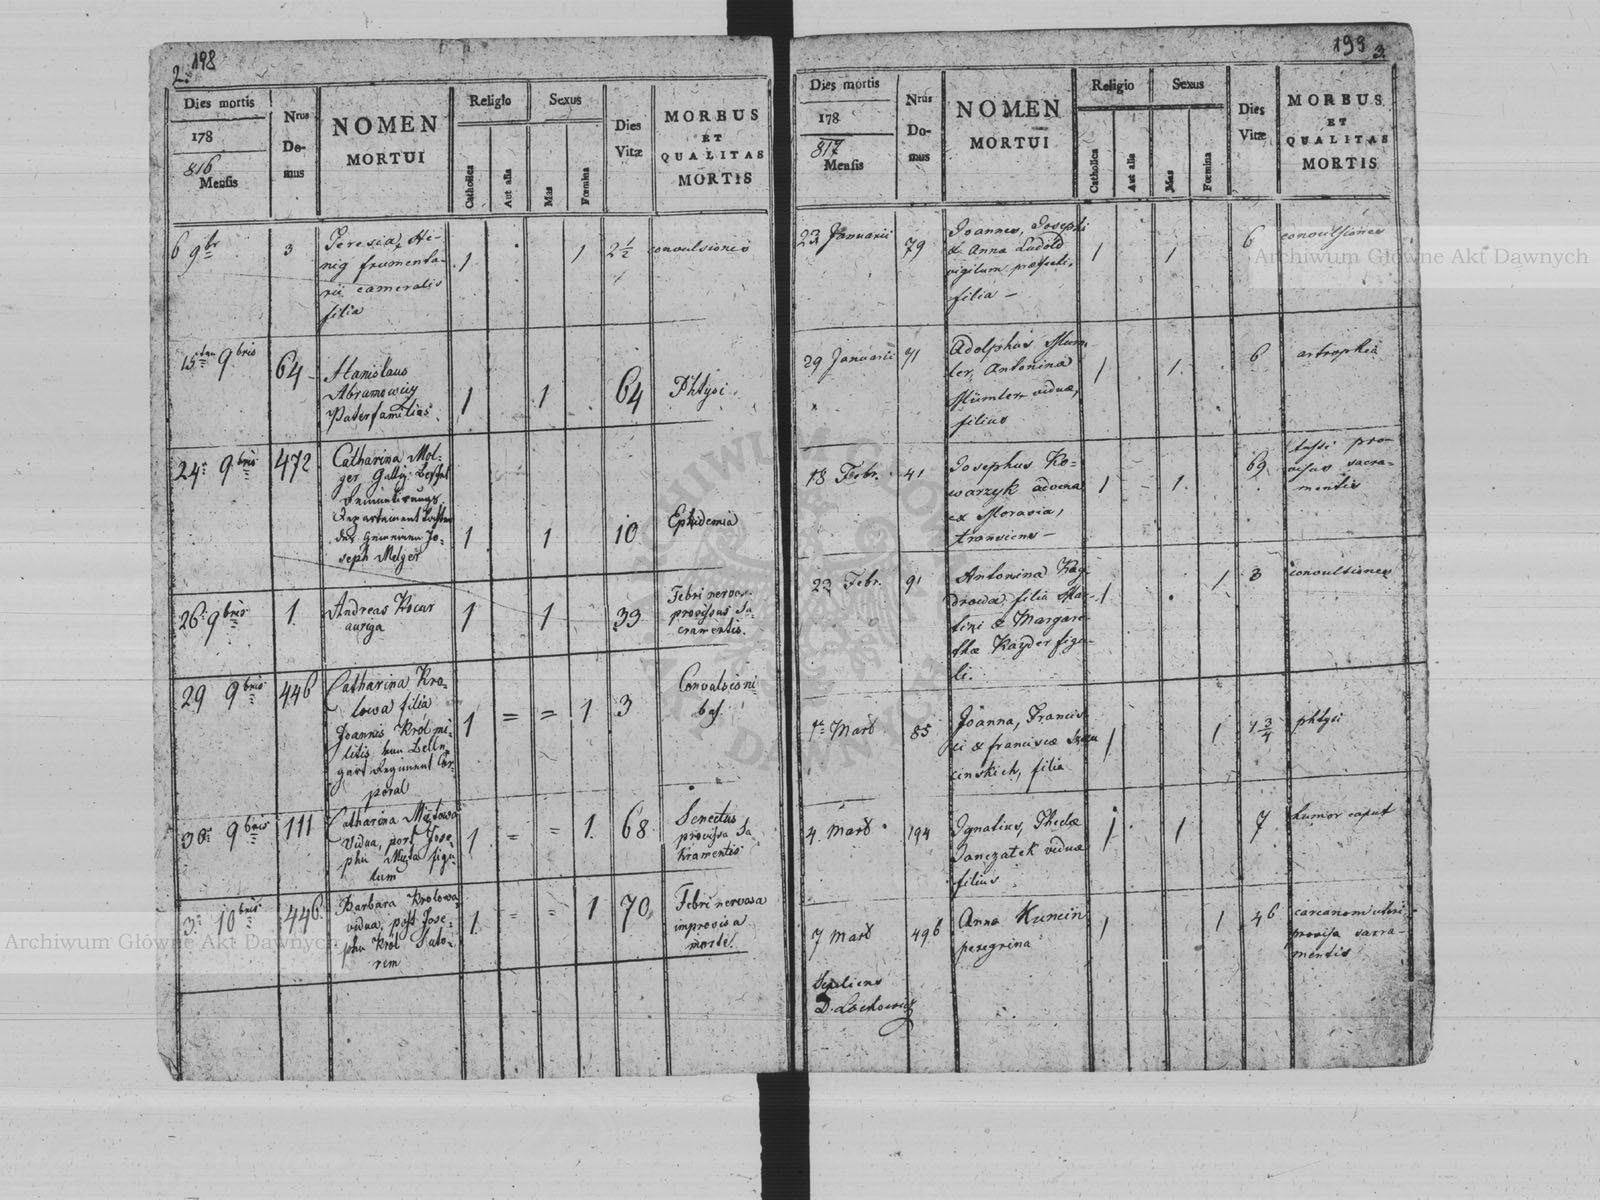 2. 198
Dies mortis
178
816
Mensis
Nrus
Do-
mus
NOMEN
MORTUI
Religio
Catholica
Aut alia
Sexus
Mas
Fœmina
Dies
Vitæ
MORBUS
ET
QUALITAS
MORTIS
6 9br 3 Teresia, He-
nig frumenta-
rii cameralis
filia
1 1 2 1/2 convulsiones
15 9bris 64 Stanislaus
Abramowicz
Paterfamilias
1 1 64 Phtysi
24 9bris 472 Catharina Mel-
ger
Departement
Jo-
seph Melger
1 1 10 Ephidemia
26 9bris 1. Andreas Kocur
auriga
1 1 33 Febri nervos.
provisus Sa
cramentis.
29 9bris 446 Catharina Kro-
lowa filia
Joannis Król mi-
litis
Regiment Cor-
poral
1 = = 1 3 Convulsioni
bus.
30 9bris 111 Catharina
vidua, post Jose-
phu figu-
lum
1 = = 1. 68 Senectus
provisa Sa
kramentis
3 10bris 446 Barbara Krolowa
vidua, post Jose-
phu Król Suto-
rem
1. = = 1 70. Febri nervosa
improvisa
morte.
199 3.
Dies mortis
178
817
Mensis
Nrus
Do-
mus
NOMEN
MORTUI
Religio
Catholica
Aut alia
Sexus
Mas
Fœmina
Dies
Vitæ
MORBUS
ET
QUALITAS
MORTIS
23 Januarii 79 Joannes, Josephi
& Anna Ludold
vigilum præfecti,
filia —
1 1 6 convulsiones
29 Januarii 71 Adolphus
Antonina
viduæ,
filius
1 1. 6 artrophia
18 Febr. 41 Josephus Ko-
warzyk advena
ex Moravia,
transiens —
1 1. 69 tussi pro-
visus sacra-
mentis
23 Febr. 91 Antonina Kay
drowa filia Mar-
tini & Margare-
thæ Kayder figu-
li.
1 1 3 convulsiones
1 Mart 85 Joanna, Francis
ci & franciscæ
cinskich, filia
1 1 1 3/4 phtysi
4 Mart 194 Ignatius, Theclæ
Janczatek viduæ
filius
1 1 7 tumor caput
7 Mart 496 Anna Kuncin
peregrina
1 1 46 carcanom uteri
provisa sacra-
mentis
Sepeliens
D. Lachowicz
Archiwum Główne Akt Dawnych
Archiwum Główne Akt Dawnych
ARCHIWUM GŁÓWNE AKT DAWNYCH